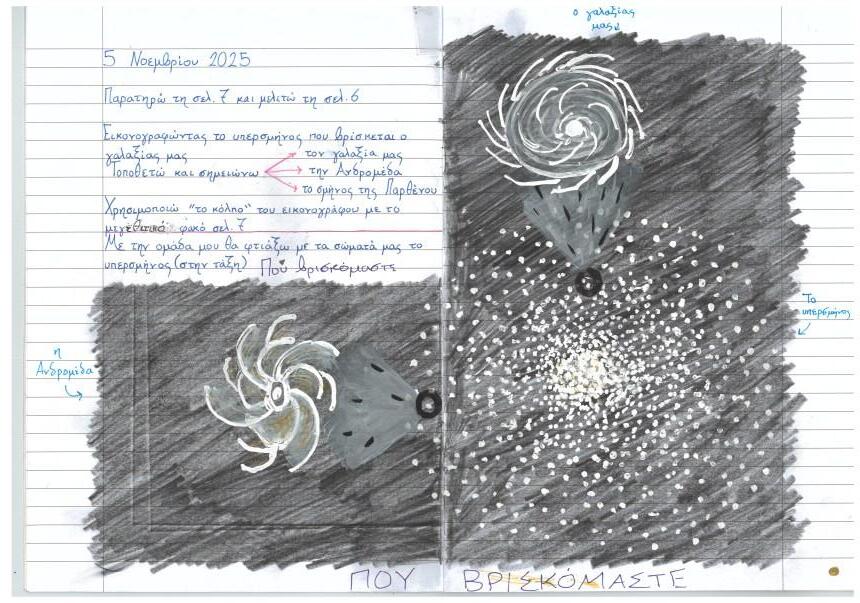 5 Νοεμβρίου 2025
Παρατηρώ τη σελ. 7 και μελετώ τη σελ. 6
Εικονογραφώντας το υπερσμήνος που βρίσκεται ο
γαλαξίας μας
Τοποθετώ και σημειώνω
τον γαλαξία μας
την Ανδρομέδα
το σμήνος της Παρθένου
Χρησιμοποιώ "το κόλπο" του εικονογράφου με το
μεγεθυτικό φακό σελ. 7
Με την ομάδα μου θα φτιάξω με τα σώματά μας το
υπερσμήνος (στην τάξη)
Που βρισκόμαστε
ο γαλαξίας
μας
Το
υπερσμήνος
η
Ανδρομέδα
ΠΟΥ ΒΡΙΣΚΌΜΑΣΤΕ